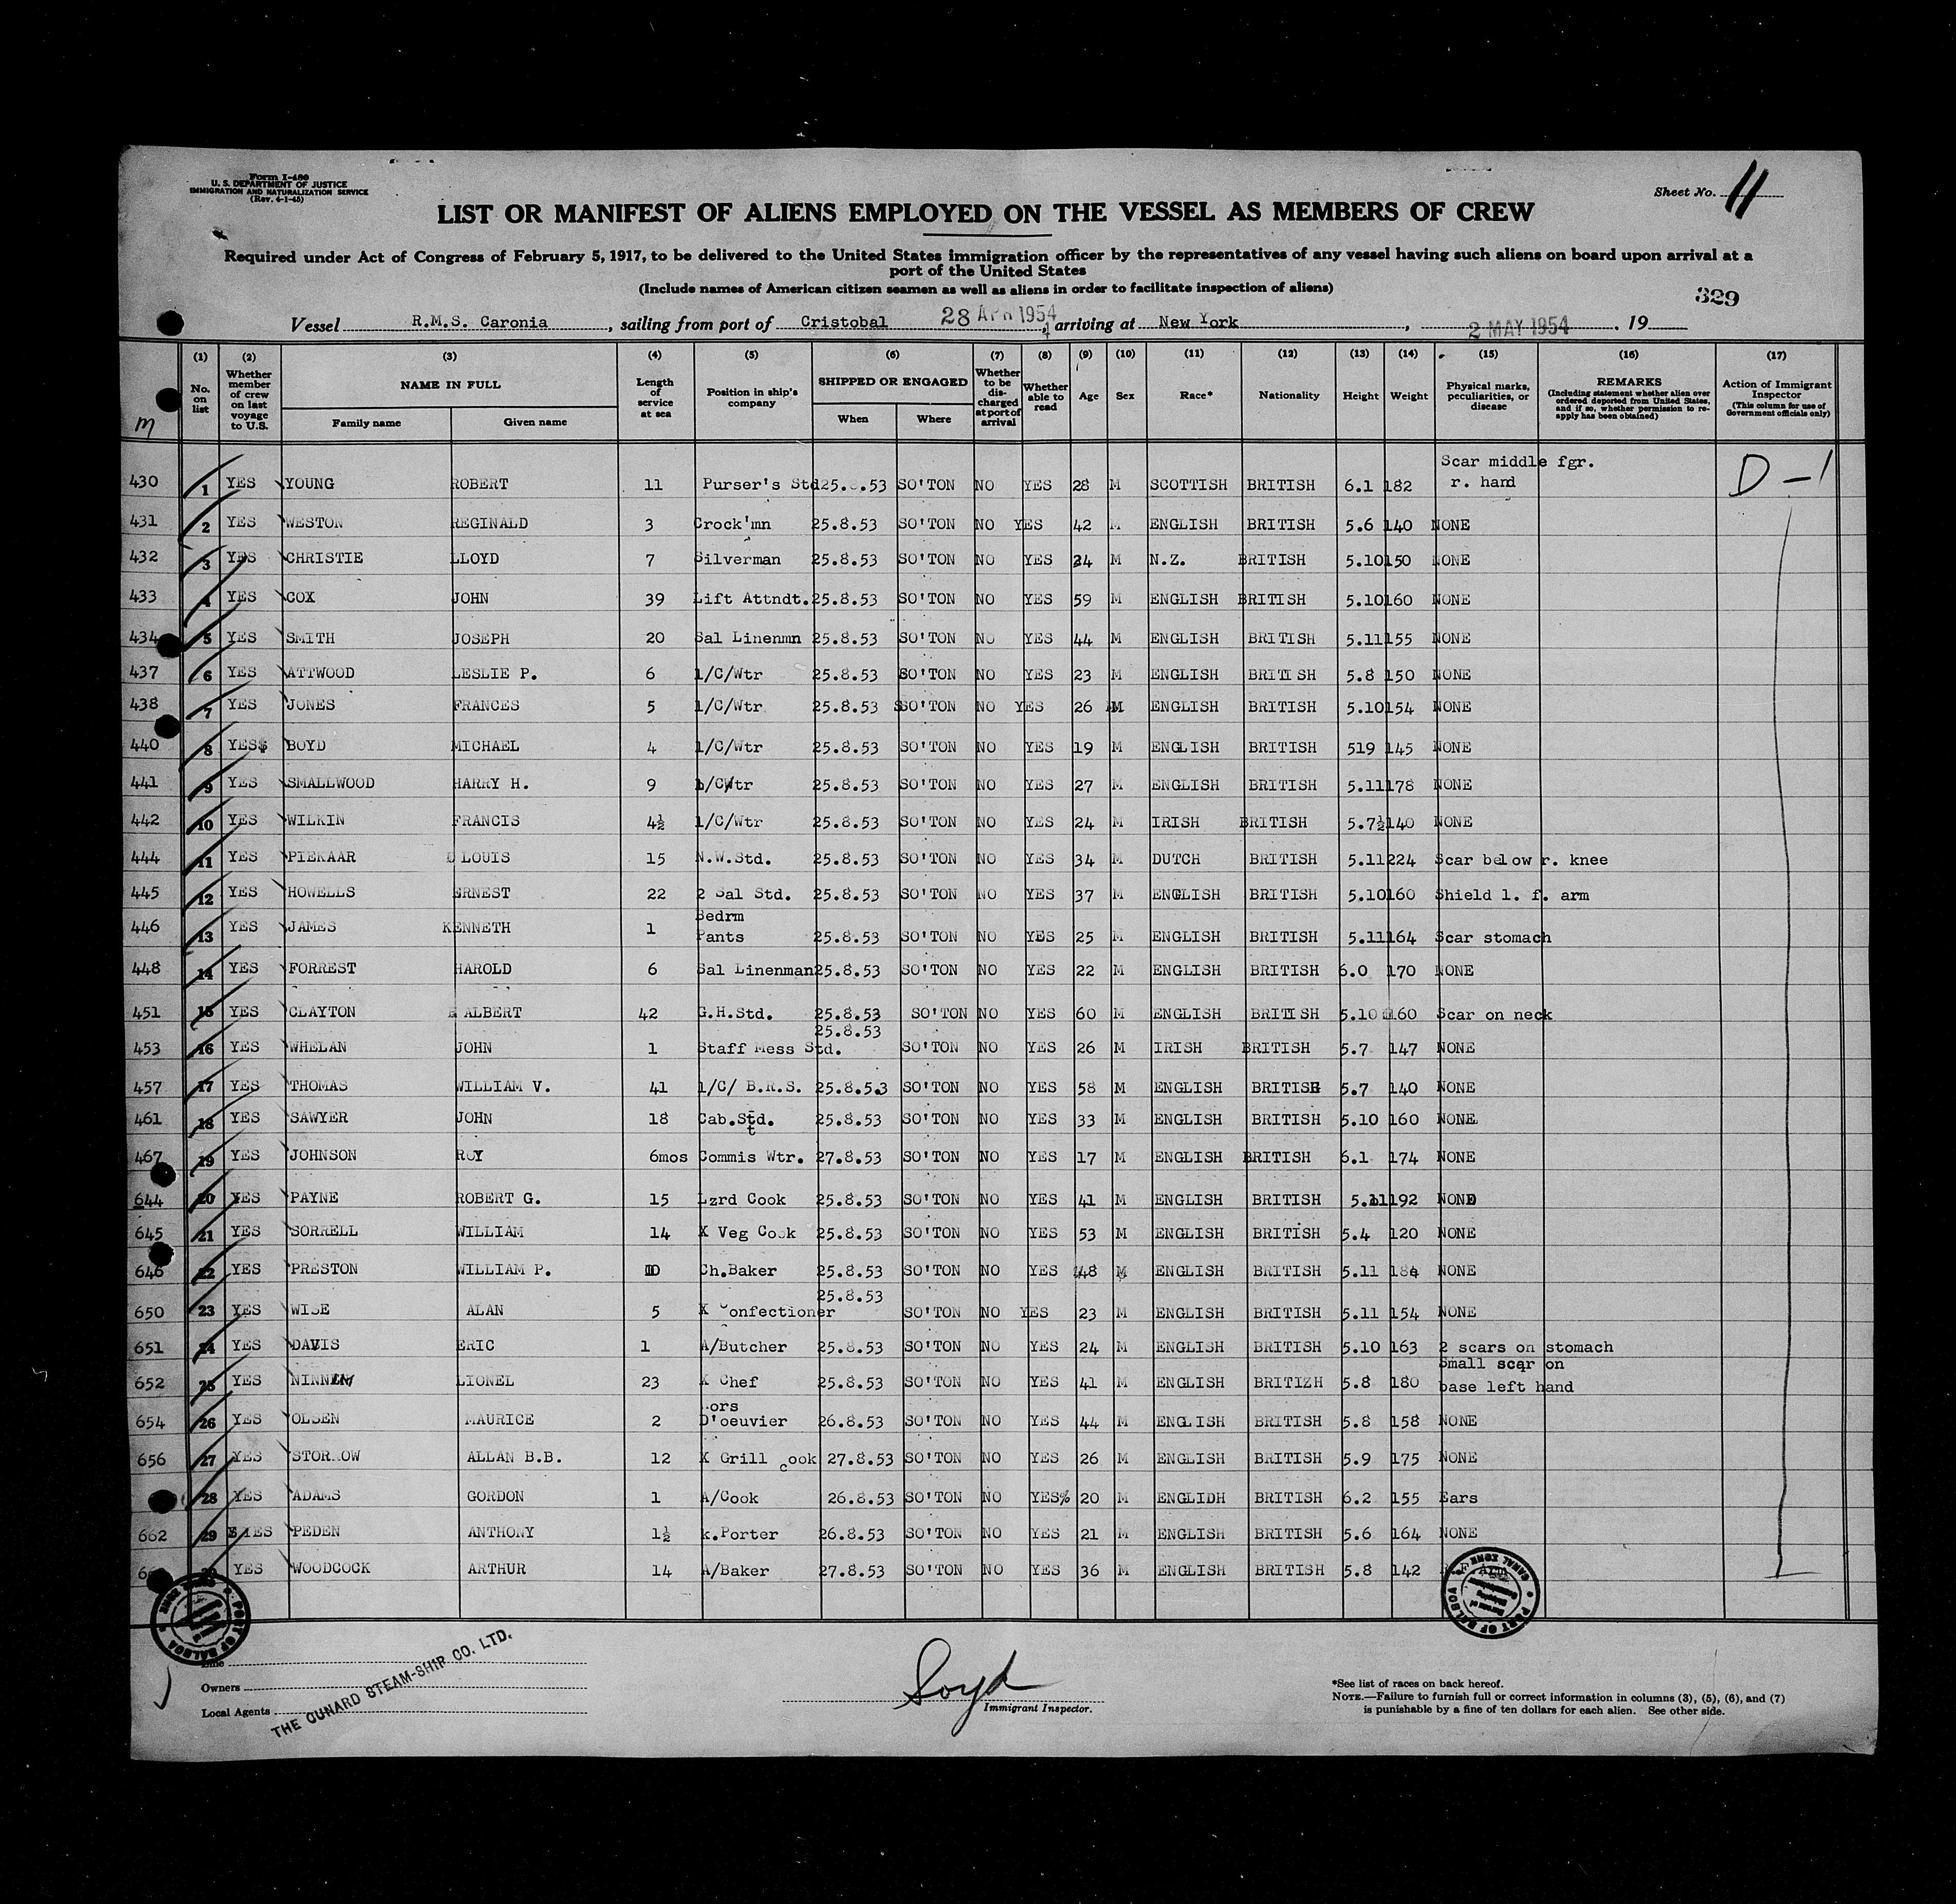 Form I-480
U. S. DEPARTMENT OF JUSTICE
IMMIGRATION AND NATURALIZATION SERVICE
(Rev. 4-1-45)
Sheet No. 11
LIST OR MANIFEST OF ALIENS EMPLOYED ON THE VESSEL AS MEMBERS OF CREW
Required under Act of Congress of February 5, 1917, to be delivered to the United States immigration officer by the representatives of any vessel having such aliens on board upon arrival at a
port of the United States
(Include names of American citizen seamen as well as aliens in order to facilitate inspection of aliens)
329
Vessel R.M.S. Caronia, sailing from port of Cristobal 28 APR 1954, arriving at New York, 2 MAY 1954, 19
(1) No. on list (2) Whether member of crew on last voyage to U.S. (3) NAME IN FULL Family name Given name (4) Length of service at sea (5) Position in ship's company (6) SHIPPED OR ENGAGED When Where (7) Whether to be discharged at port of arrival (8) Whether able to read (9) Age (10) Sex (11) Race* (12) Nationality (13) Height (14) Weight (15) Physical marks, peculiarities, or disease (16) REMARKS (Including statement whether alien ever ordered deported from United States, and if so, whether permission to reapply has been obtained) (17) Action of Immigrant Inspector (This column for use of Government officials only)
m
430 1 YES YOUNG ROBERT 11 Purser's Std 25.8.53 SO'TON NO YES 28 M SCOTTISH BRITISH 6.1 182 Scar middle fgr. r. hand D-1
431 2 YES WESTON REGINALD 3 Crock'mn 25.8.53 SO'TON NO YES 42 M ENGLISH BRITISH 5.6 140 NONE
432 3 YES CHRISTIE LLOYD 7 Silverman 25.8.53 SO'TON NO YES 24 M N.Z. BRITISH 5.10 150 NONE
433 4 YES COX JOHN 39 Lift Attndt. 25.8.53 SO'TON NO YES 59 M ENGLISH BRITISH 5.10 160 NONE
434 5 YES SMITH JOSEPH 20 Sal Linenmn 25.8.53 SO'TON NO YES 44 M ENGLISH BRITISH 5.11 155 NONE
437 6 YES ATTWOOD LESLIE P. 6 1/C/Wtr 25.8.53 SO'TON NO YES 23 M ENGLISH BRITISH 5.8 150 NONE
438 7 YES JONES FRANCES 5 1/C/Wtr 25.8.53 SO'TON NO YES 26 M ENGLISH BRITISH 5.10 154 NONE
440 8 YES BOYD MICHAEL 4 1/C/Wtr 25.8.53 SO'TON NO YES 19 M ENGLISH BRITISH 519 145 NONE
441 9 YES SMALLWOOD HARRY H. 9 1/CWtr 25.8.53 SO'TON NO YES 27 M ENGLISH BRITISH 5.11 178 NONE
442 10 YES WILKIN FRANCIS 4½ 1/C/Wtr 25.8.53 SO'TON NO YES 24 M IRISH BRITISH 5.7½ 140 NONE
444 11 YES PIEKAAR LOUIS 15 N.W.Std. 25.8.53 SO'TON NO YES 34 M DUTCH BRITISH 5.11 224 Scar below r. knee
445 12 YES HOWELLS ERNEST 22 2 Sal Std. 25.8.53 SO'TON NO YES 37 M ENGLISH BRITISH 5.10 160 Shield l. f. arm
446 13 YES JAMES KENNETH 1 Bedrm Pants 25.8.53 SO'TON NO YES 25 M ENGLISH BRITISH 5.11 164 Scar stomach
448 14 YES FORREST HAROLD 6 Sal Linenman 25.8.53 SO'TON NO YES 22 M ENGLISH BRITISH 6.0 170 NONE
451 15 YES CLAYTON ALBERT 42 G.H.Std. 25.8.53 SO'TON NO YES 60 M ENGLISH BRITISH 5.10 160 Scar on neck
453 16 YES WHELAN JOHN 1 Staff Mess Std. 25.8.53 SO'TON NO YES 26 M IRISH BRITISH 5.7 147 NONE
457 17 YES THOMAS WILLIAM V. 41 1/C/ B.R.S. 25.8.5.3 SO'TON NO YES 58 M ENGLISH BRITISH 5.7 140 NONE
461 18 YES SAWYER JOHN 18 Cab.Std. 25.8.53 SO'TON NO YES 33 M ENGLISH BRITISH 5.10 160 NONE
467 19 YES JOHNSON ROY 6mos Commis Wtr. 27.8.53 SO'TON NO YES 17 M ENGLISH BRITISH 6.1 174 NONE
644 20 YES PAYNE ROBERT G. 15 Lzrd Cook 25.8.53 SO'TON NO YES 41 M ENGLISH BRITISH 5.11 192 NONE
645 21 YES SORRELL WILLIAM 14 X Veg Cook 25.8.53 SO'TON NO YES 53 M ENGLISH BRITISH 5.4 120 NONE
646 22 YES PRESTON WILLIAM P. 10 Ch.Baker 25.8.53 SO'TON NO YES 48 M ENGLISH BRITISH 5.11 184 NONE
650 23 YES WISE ALAN 5 X Confectioner 25.8.53 SO'TON NO YES 23 M ENGLISH BRITISH 5.11 154 NONE
651 24 YES DAVIS ERIC 1 A/Butcher 25.8.53 SO'TON NO YES 24 M ENGLISH BRITISH 5.10 163 2 scars on stomach
652 25 YES LIONEL 23 X Chef 25.8.53 SO'TON NO YES 41 M ENGLISH BRITIZH 5.8 180 Small scar on base left hand
654 26 YES OLSEN MAURICE 2 ors D'oeuvier 26.8.53 SO'TON NO YES 44 M ENGLISH BRITISH 5.8 158 NONE
656 27 YES STORROW ALLAN B.B. 12 X Grill cook 27.8.53 SO'TON NO YES 26 M ENGLISH BRITISH 5.9 175 NONE
28 YES ADAMS GORDON 1 A/Cook 26.8.53 SO'TON NO YES% 20 M ENGLIDH BRITISH 6.2 155 Ears
662 29 YES PEDEN ANTHONY 1½ k.Porter 26.8.53 SO'TON NO YES 21 M ENGLISH BRITISH 5.6 164 NONE
YES WOODCOCK ARTHUR 14 A/Baker 27.8.53 SO'TON NO YES 36 M ENGLISH BRITISH 5.8 142
PORT OF BALBOA CANAL ZONE
PORT OF BALBOA CANAL ZONE
Line
Owners
Local Agents
THE CUNARD STEAM-SHIP CO. LTD.
Immigrant Inspector.
*See list of races on back hereof.
NOTE.—Failure to furnish full or correct information in columns (3), (5), (6), and (7)
is punishable by a fine of ten dollars for each alien. See other side.